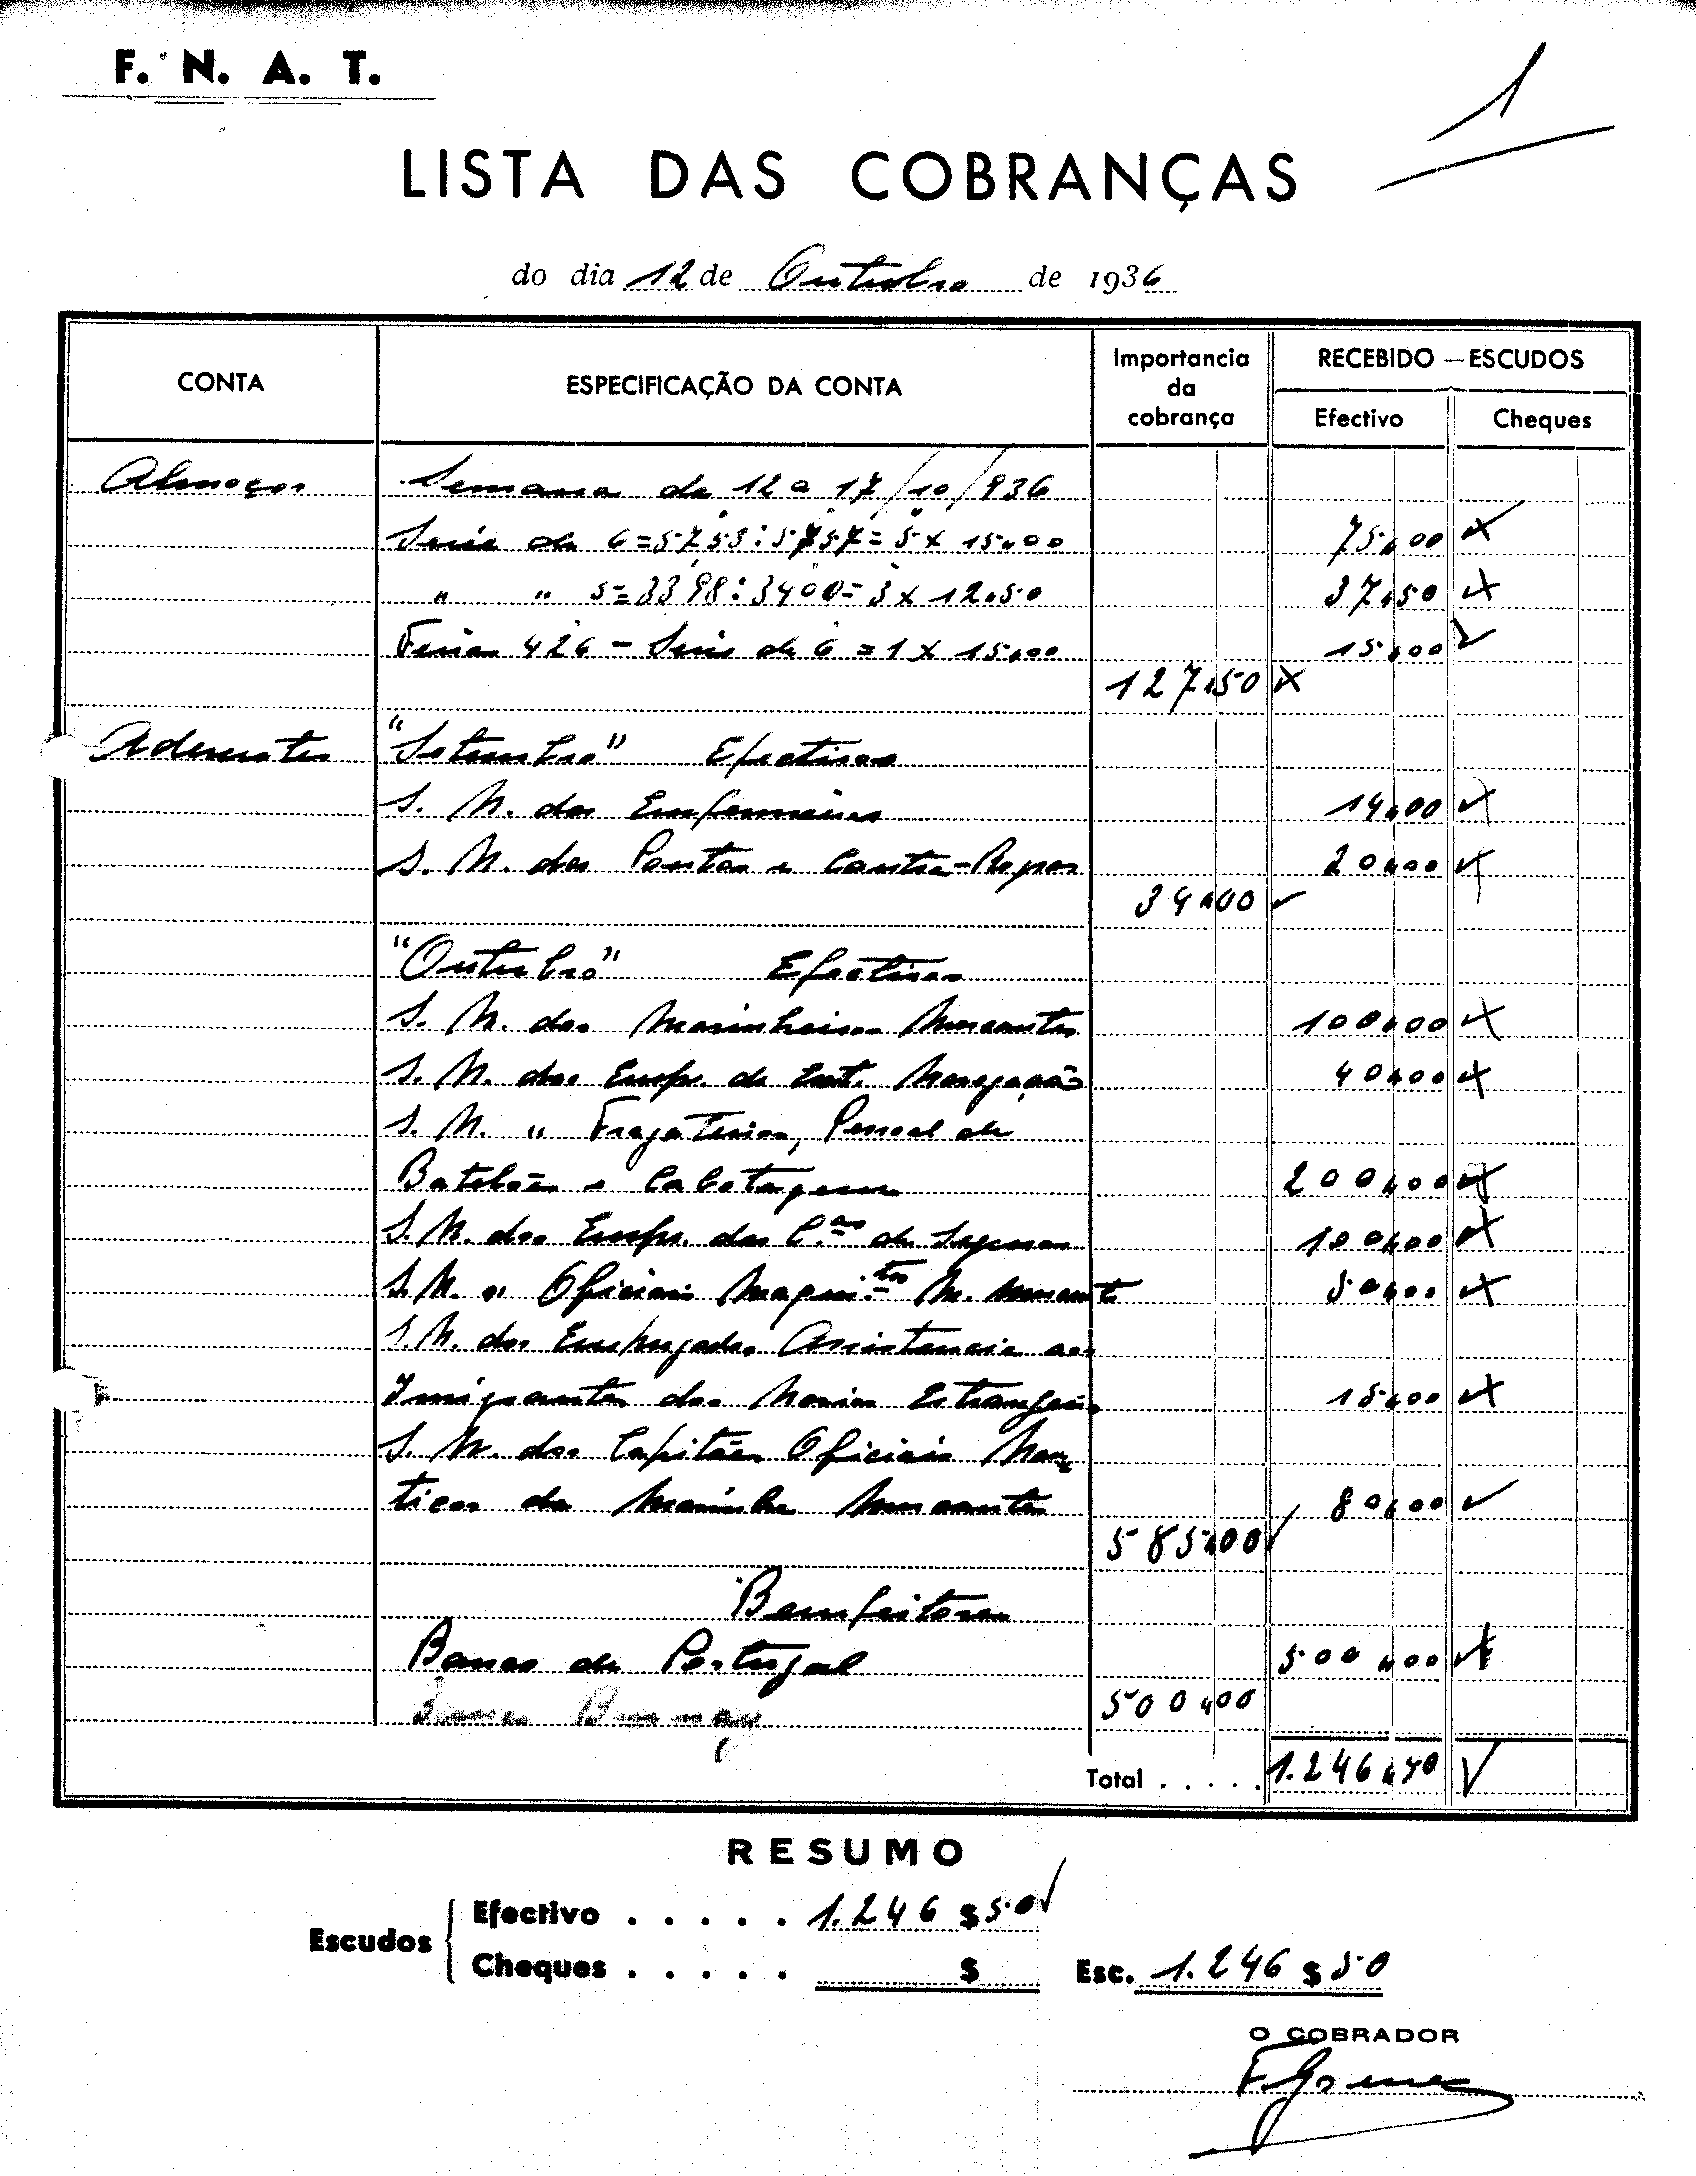 F. N. A. T.
1
LISTA DAS COBRANÇAS
do dia 12 de Outubro de 1936
CONTA
ESPECIFICAÇÃO DA CONTA
Importancia da cobrança
RECEBIDO — ESCUDOS
Efectivo
Cheques
Almoços Semana de 12 a 17/10/936
Serie de 6=5753:5757=5x 15,00 75,00
" " 5=3398:3400=3x12,50 37,50
426 - Serie de 6 = 1 x 15,00 15,00
127,50
Aderentes "Setembro" Efectivos
S. N. dos Enfermeiros 14,00
S. N. dos Pontos e Contra-Regras 20,00
34,00
"Outubro" Efectivos
S. N. dos Marinheiros Mercantes 100,00
S. N. dos Emp. de Navegação 40,00
S. N. " Fragateiros, Pessoal de
Batelão e Cabotagem 200,00
S. N. dos Emp. das C.as de Seguros 100,00
S. N. " Oficiais Maqui.tas M. Mercante 50,00
S. N. dos Empregados Assistencia aos
Imigrantes dos Navios Estrangeiros 15,00
S. N. dos Capitães Oficiais Nau-
ticos da Marinha Mercante 80,00
585,00
Bemfeitores
Banco de Portugal 500,00
500,00
Total . . . . . 1.246,50
RESUMO
Escudos
Efectivo . . . . . 1.246 $ 50
Cheques . . . . . $
Esc. 1.246 $ 50
O COBRADOR